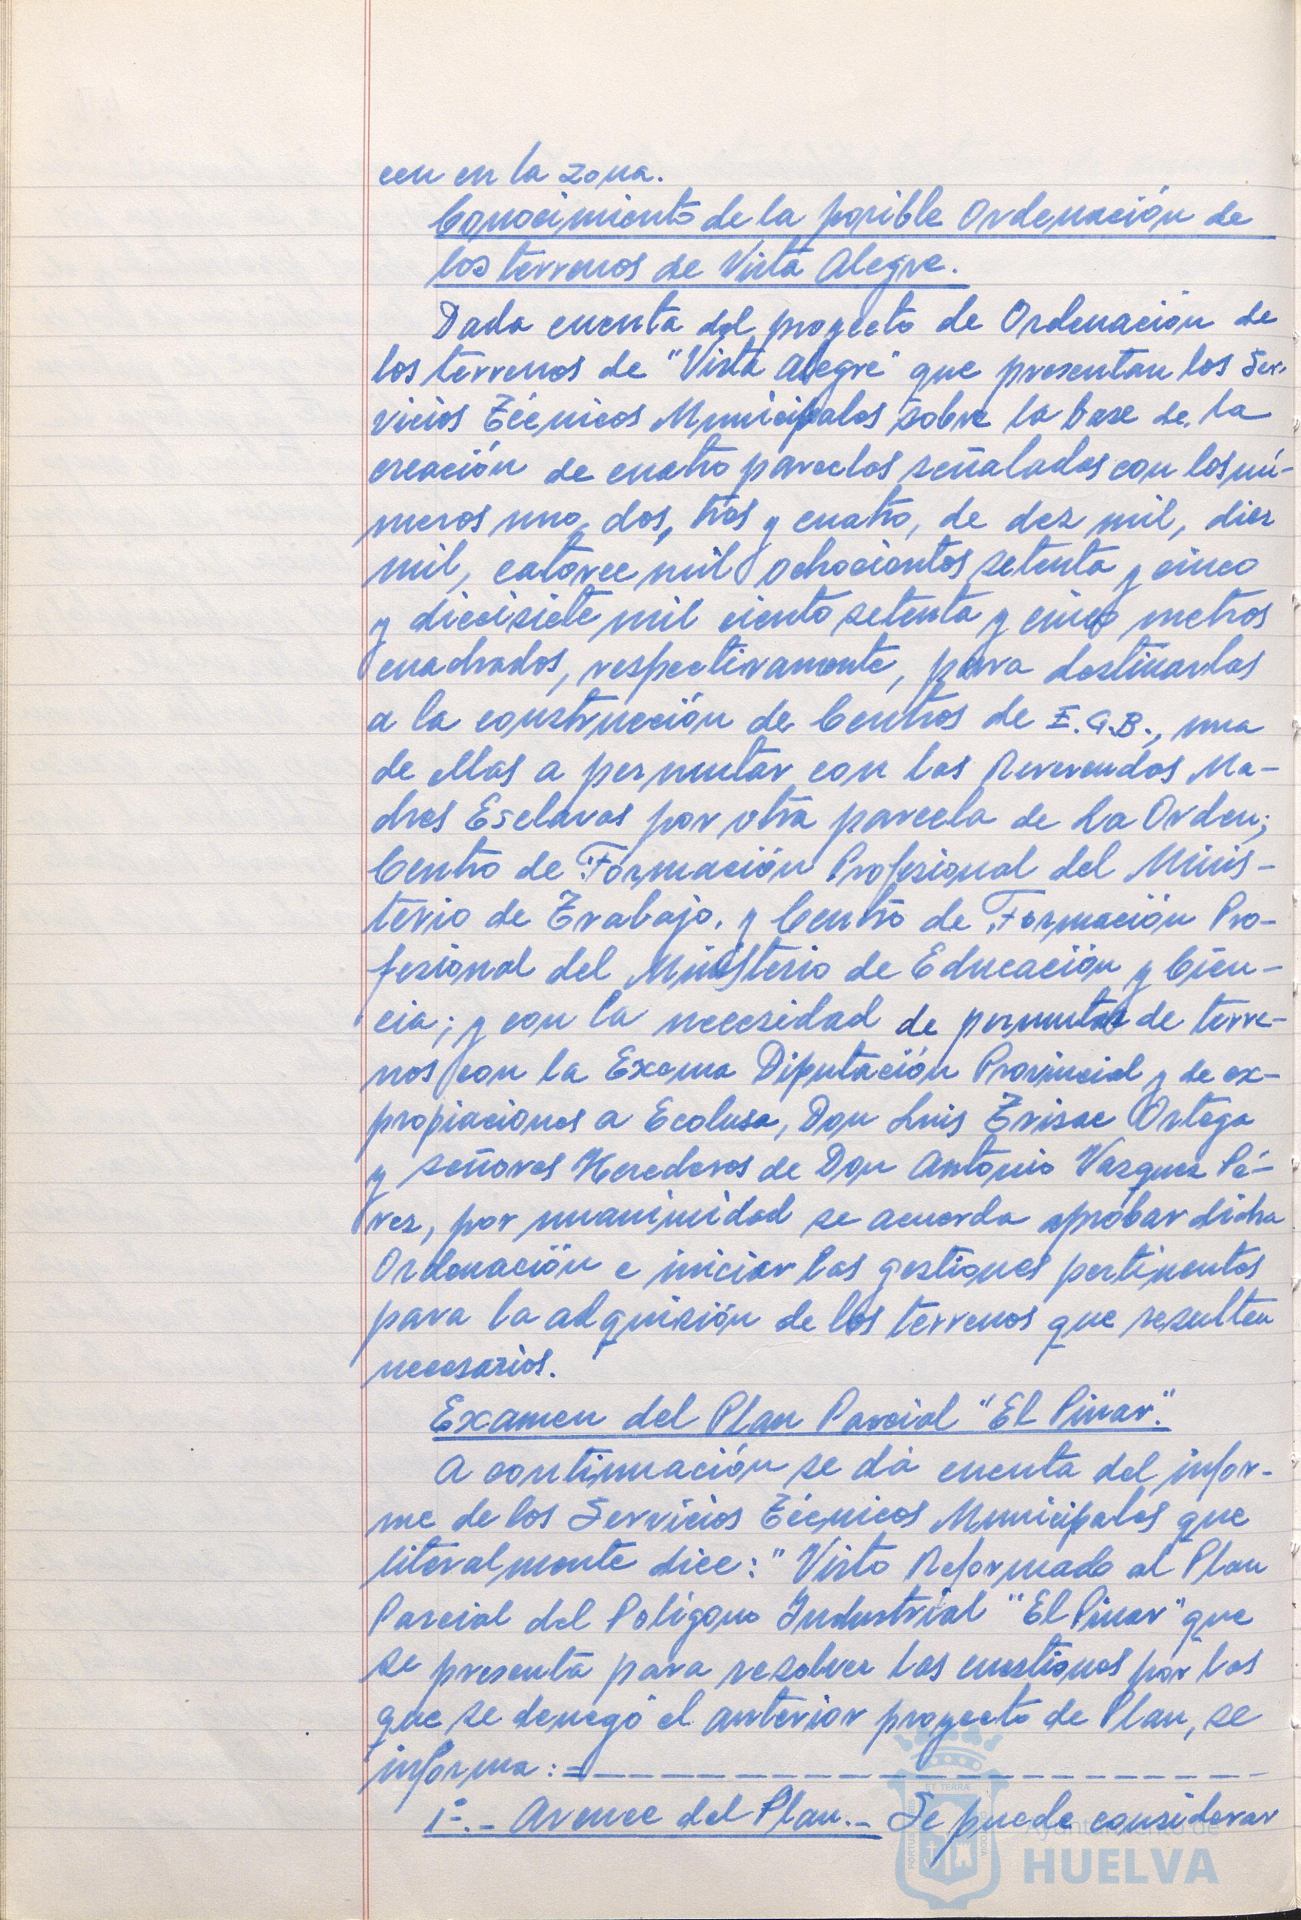 cen en la zona.
Conocimiento de la posible Ordenación de
los terrenos de Vista Alegre.
Dada cuenta del proyecto de Ordenación de
los terrenos de "Vista Alegre" que presentan los Ser-
vicios Técnicos Municipales sobre la base de la
creación de cuatro parcelas señaladas con los nú-
meros uno, dos, tres y cuatro, de diez mil, diez
mil, catorce mil ochocientos setenta y cinco
y diecisiete mil ciento setenta y cinco metros
cuadrados, respectivamente, para destinarlas
a la construcción de Centros de E.G.B., una
de ellas a permutar con las Reverendas Ma-
dres Esclavas por otra parcela de La Orden;
Centro de Formación Profesional del Minis-
terio de Trabajo, y Centro de Formación Pro-
fesional del Ministerio de Educación y Cien-
cia; y con la necesidad de permutas de terre-
nos con la Excma Diputación Provincial y de ex-
propiaciones a Ecolusa, Don Luis Trisac Ortega
y señores Herederos de Don Antonio Vazquez Pé-
rez, por unanimidad se acuerda aprobar dicha
Ordenación e iniciar las gestiones pertinentes
para la adquisión de los terrenos que resulten
necesarios.
Examen del Plan Parcial "El Pinar".
A continuación se dá cuenta del infor-
me de los Servicios Técnicos Municipales que
literalmente dice: "Visto Reformado al Plan
Parcial del Polígono Industrial "El Pinar" que
se presenta para resolver las cuestiones por las
que se denegó el anterior proyecto de Plan, se
informa:=
1º.- Avance del Plan.- Se puede considerar
Ayuntamiento de
HUELVA